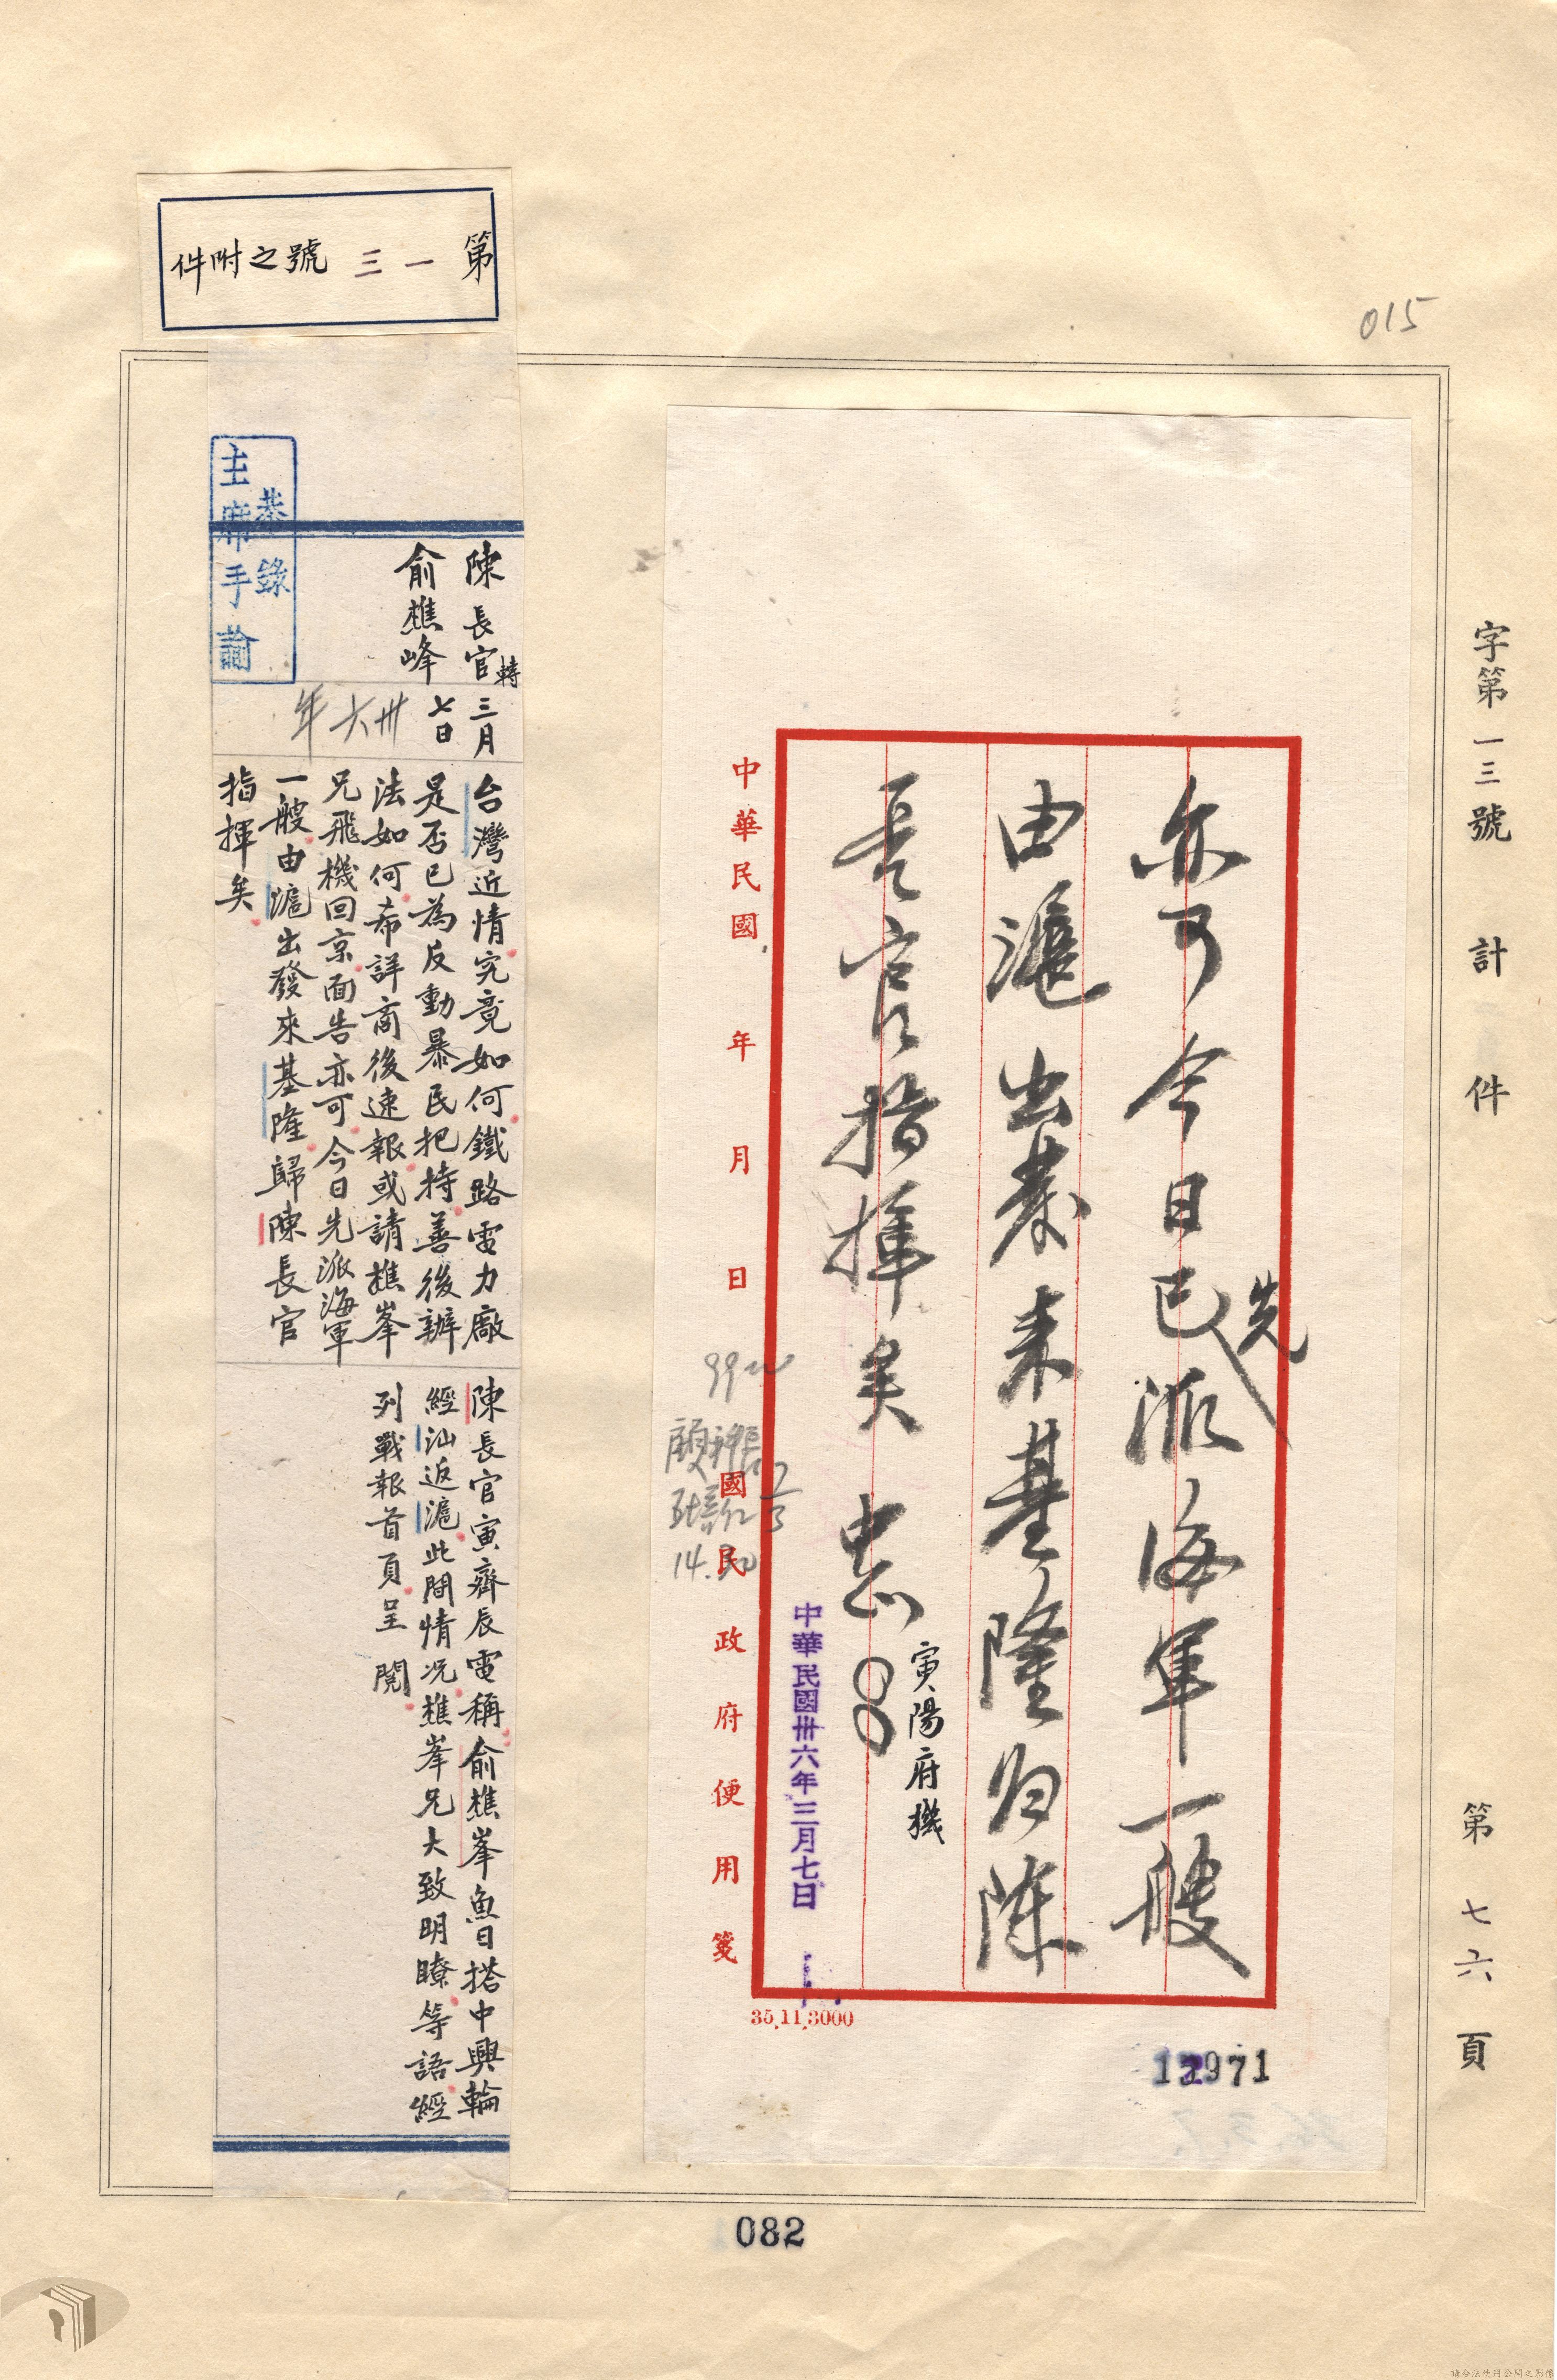 015
字第一三號 計 件
第七六頁
亦可今日已先派海軍一艘
由滬出發来基隆归陳
長官指揮矣 中正
寅陽府機
中華民國卅六年三月七日
中華民國 年 月 日
國民政府便用箋
14.30
35.11.3000
12971
第一三號之附件
恭錄
主席手諭
陳長官轉
俞樵峰
三月
七日
卅六年
台灣近情究竟如何鐵路電力廠
是否已為反動暴民把持善後辦
法如何希詳商後速報或請樵峯
兄飛機回京面告亦可今日先派海軍
一艘由滬出發來基隆歸陳長官
指揮矣
陳長官寅齊辰電稱俞樵峯魚日搭中興輪
經汕返滬此間情況樵峯兄大致明瞭等語經
列戰報首頁呈 閱
082
請合法使用公開之影像